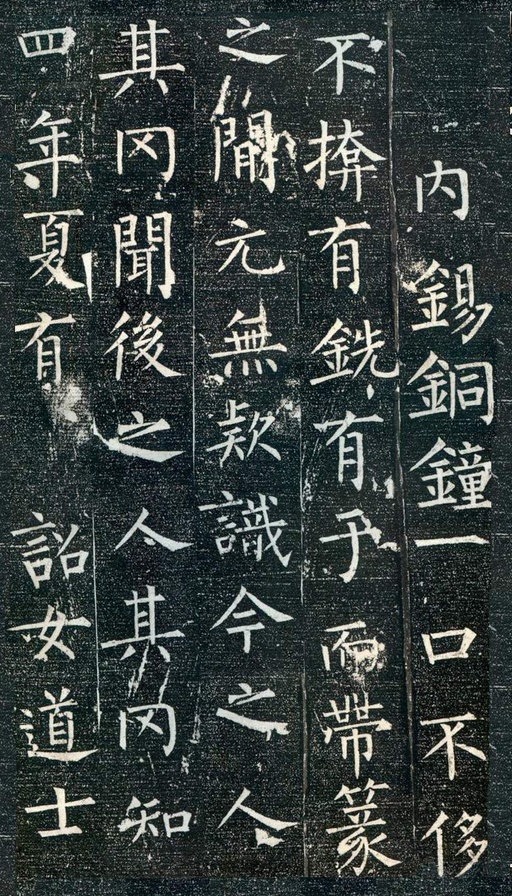 内錫銅鐘一口不侈
不揜有銑有于而帶篆
之間元無欵識今之人
其罔聞後之人其罔知
四年夏有詔女道士